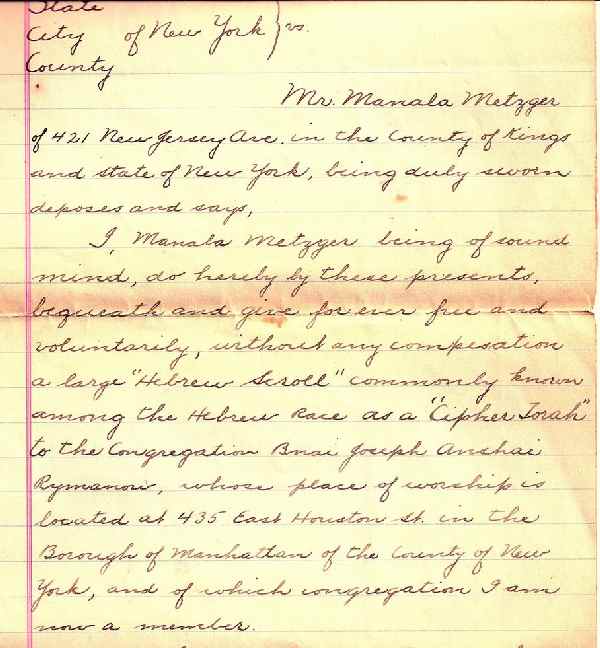 State
City of New York } vs.
County
Mr. Manala Metzger
of 421 New Jersey Ave. in the County of Kings
and state of New York, being duly sworn
deposes and says,
I, Manala Metzger being of sound
mind, do hereby by these presents,
bequeath and give for ever free and
voluntarily, without any compesation
a large "Hebrew Scroll" commonly known
among the Hebrew Race as a "Cipher Torah"
to the Congregation Bnai Joseph Anshai
Rymanow, whose place of worship is
located at 435 East Houston St. in the
Borough of Manhattan of the County of New
York, and of which congregation I am
now a member.